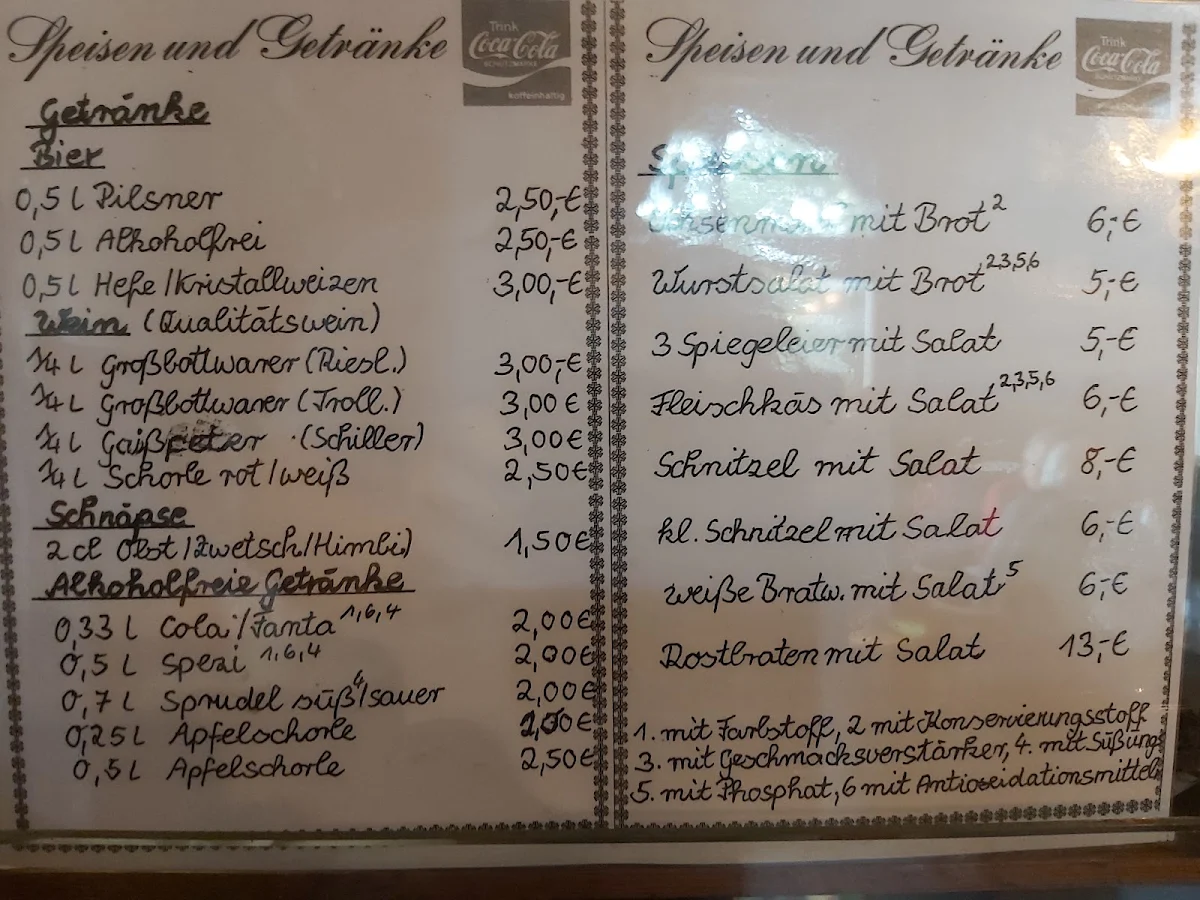 Speisen und Getränke
Trink
Coca-Cola
SCHUTZMARKE
koffeinhaltig
Getränke
Bier
0,5 l Pilsner 2,50,-€
0,5 l Alkoholfrei 2,50,-€
0,5 l Hefe/Kristallweizen 3,00,-€
Wein (Qualitätswein)
1/4 l Großbottwarer (Riesl.) 3,00,-€
1/4 l Großbottwarer (Troll.) 3,00 €
1/4 l Gaißpeter (Schiller) 3,00€
1/4 l Schorle rot/weiß 2,50€
Schnäpse
2 cl Obst/Zwetsch/Himbi) 1,50€
Alkoholfreie Getränke
0,33 l Cola/Fanta 1,6,4 2,00€
0,5 l Spezi 1,6,4 2,00€
0,7 l Sprudel süß 4/sauer 2,00€
0,25 l Apfelschorle
0,5 l Apfelschorle 2,50€
Speisen und Getränke
Trink
Coca-Cola
SCHUTZMARKE
Speisen
mit Brot 2 6,-€
Wurstsalat mit Brot 2,3,5,6 5,-€
3 Spiegeleier mit Salat 5,-€
Fleischkäs mit Salat 2,3,5,6 6,-€
Schnitzel mit Salat 8,-€
kl. Schnitzel mit Salat 6,-€
weiße Bratw. mit Salat 5 6,-€
Rostbraten mit Salat 13,-€
1. mit Farbstoff, 2 mit Konservierungsstoff
3. mit Geschmacksverstärker, 4. mit Süßungs
5. mit Phosphat, 6 mit Antioxidationsmittel